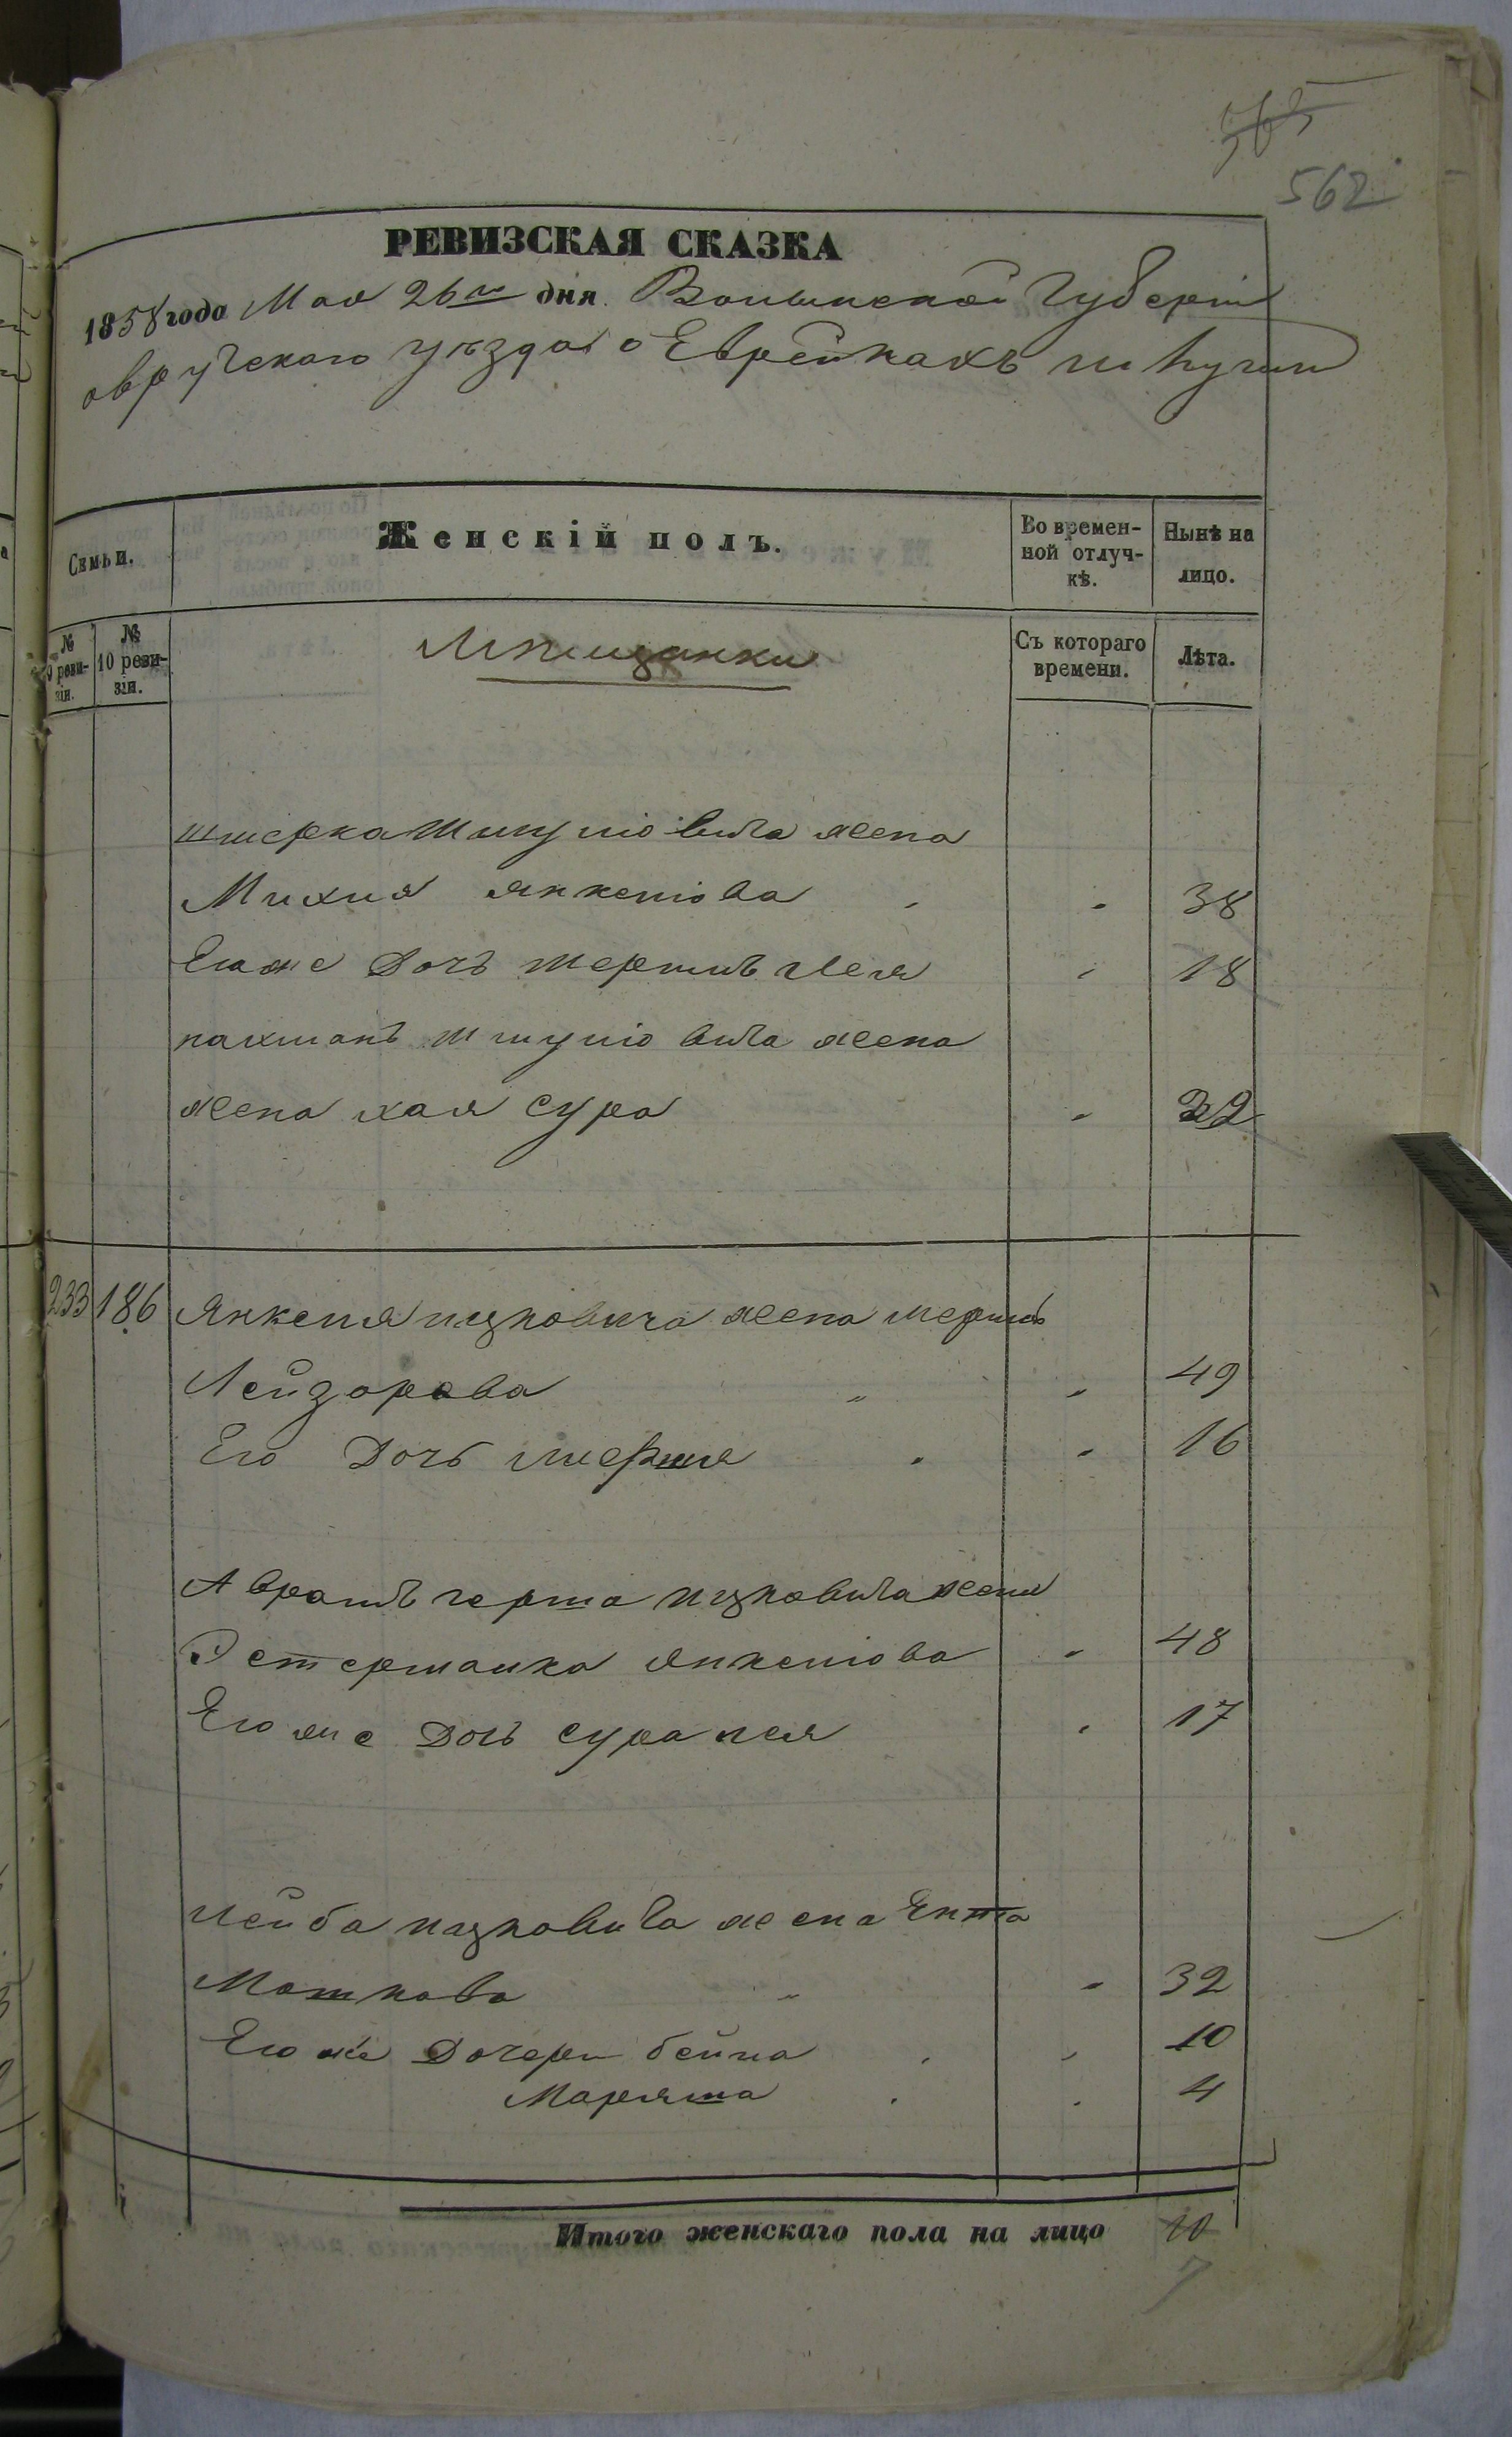 565
562
РЕВИЗСКАЯ СКАЗКА
1858 года Мая 26го дня. Волынской Губернiи
овручского уѣзда о Еврейкахъ м лугин
Семьи.
Женскій полъ.
Во времен-
ной отлуч-
кѣ.
Нынѣ на
лицо.
№
9 реви-
зіи.
№
10 реви-
зіи.
Мѣщанки
Съ котораго
времени.
Лѣта.
шмерка Шмулiовича жена
Михля янкелiова 38
Его же Дочь 18
нахманъ шмулiовича жена
жена хая сура 22
233 186 Янкеля ицковича жена
Лейзорова 49
Его Дочь 16
Аврамъ герша ицковича жена
Эстермалка янкелiова 48
Его же Дочь сура лея 17
Лейба ицковича жена Ента
Мошкова 32
Его же Дочери бейла 10
Маряша 4
Итого женскаго пола на лицо 10
7